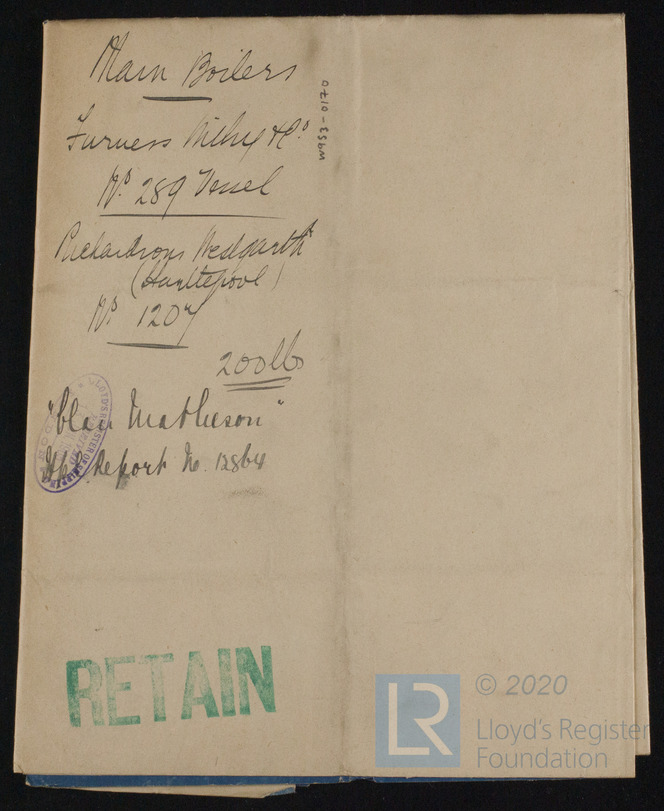 Main Boilers
W953-0170
Furness Withy & Co.
No. 289 Vessel
Richardsons Westgarth
(Hartlepool)
No. 1207
200lbs
"Clan Matheson"
LLOYD'S REGISTER OF SHIPPING
Hpl. Report No. 12864
RETAIN
LR
© 2020
Lloyd's Register
Foundation